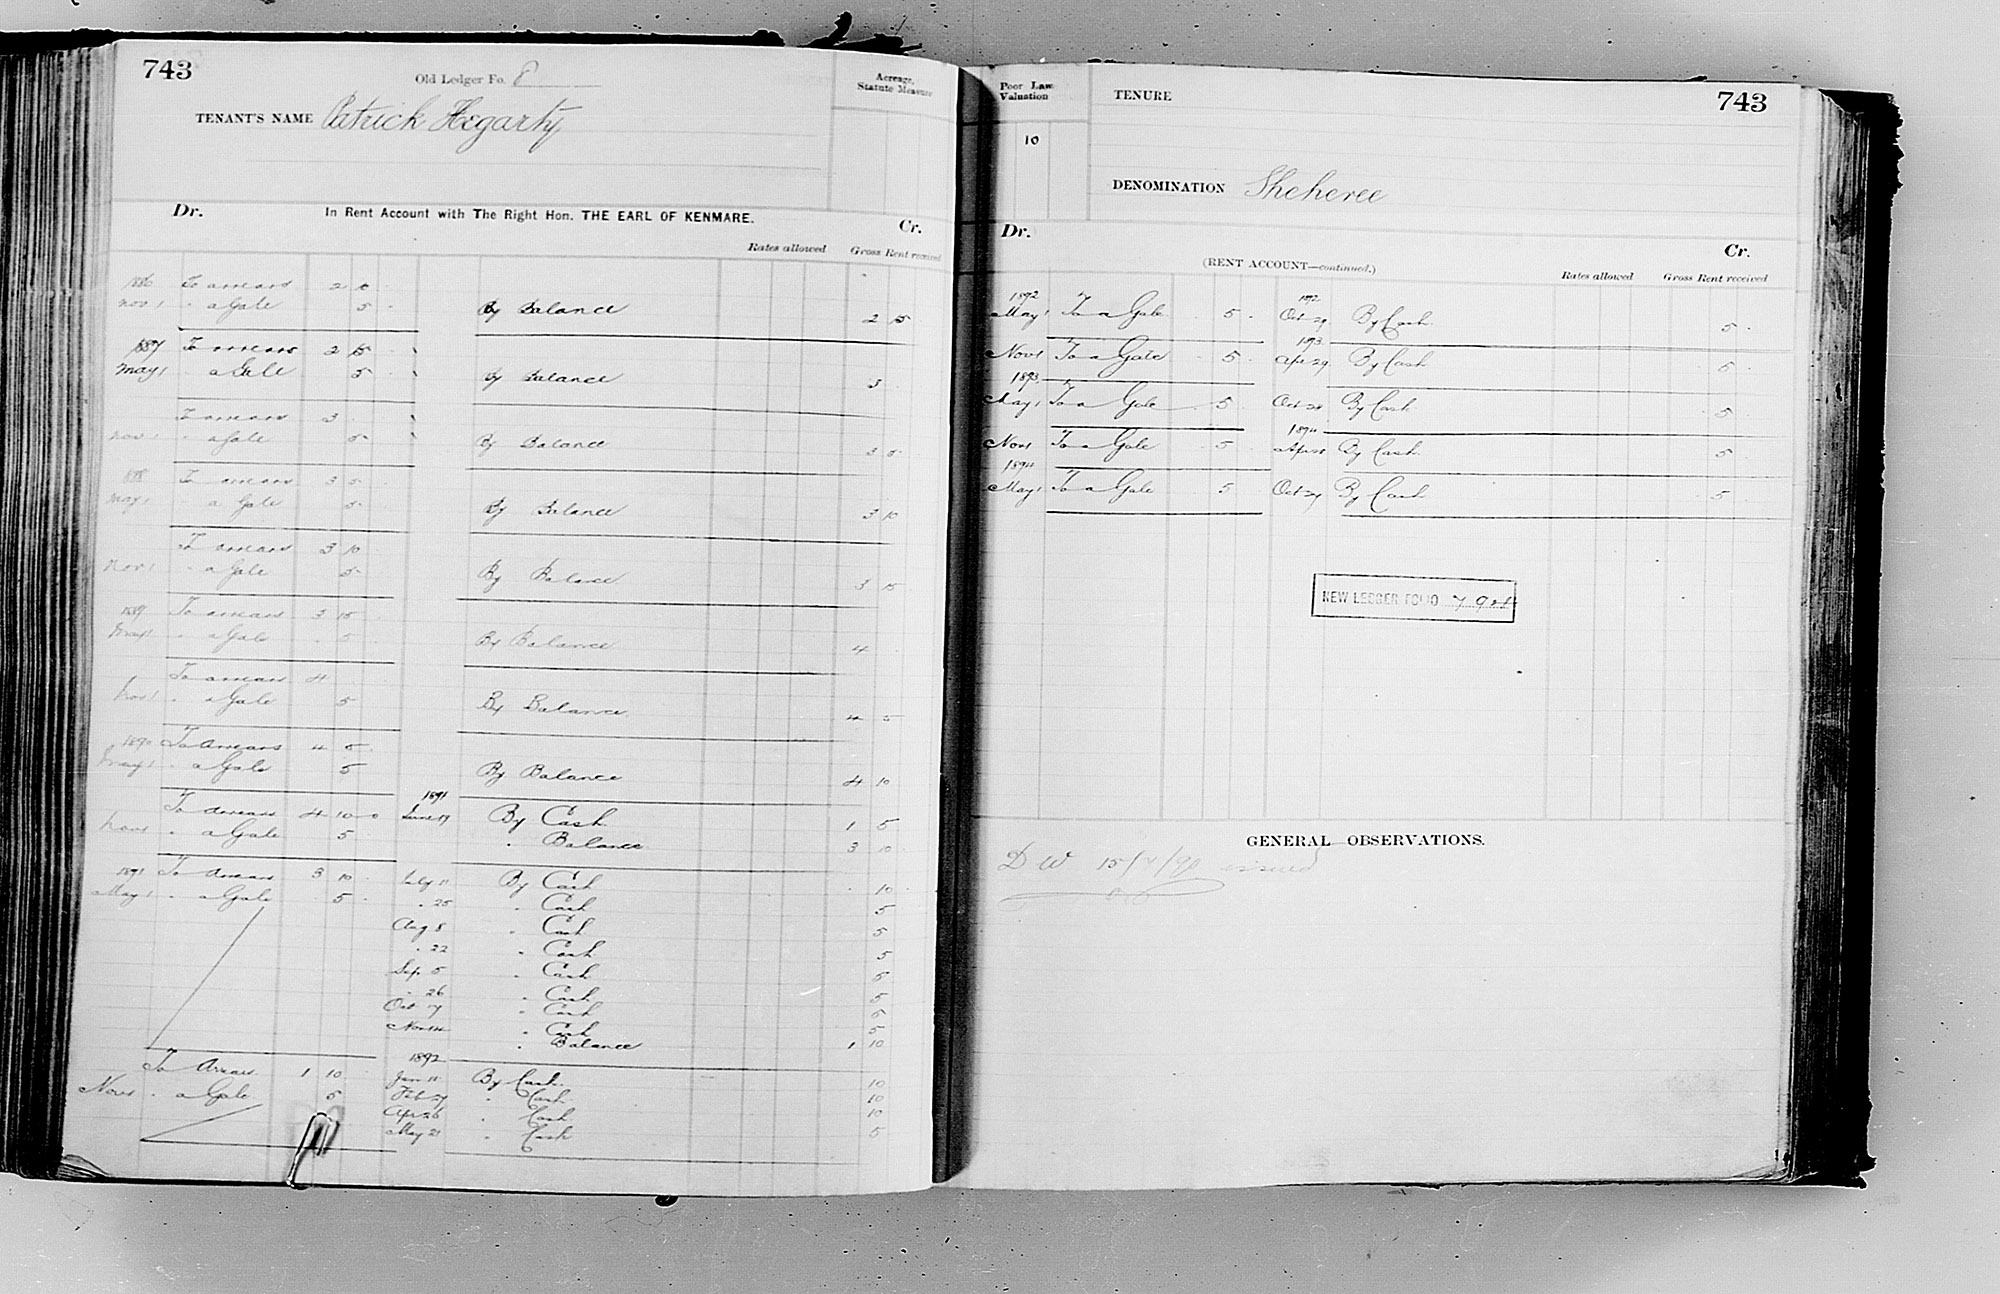 743
Old Ledger Fo. 8
Acreage, Statute Measure
TENANT'S NAME Patrick Hegarty
Dr. In Rent Account with The Right Hon. THE EARL OF KENMARE. Cr.
Rates allowed Gross Rent received
1886 To arrears 2 10
Nov 1 " a Gale 5 By Balance 2 15
1887 To arrears 2 15
May 1 " a Gale 5 By Balance 3
To arrears 3
Nov 1 " a Gale 5 By Balance 3 5
1888 To arrears 3 5
May 1 " a Gale 5 By Balance 3 10
To arrears 3 10
Nov 1 " a Gale 5 By Balance 3 15
1889 To arrears 3 15
May 1 " a Gale 5 By Balance 4
To arrears 4
Nov 1 " a Gale 5 By Balance 4 5
1890 To Arrears 4 5
May 1 " a Gale 5 By Balance 4 10
1891
To Arrears 4 10 0 June 19 By Cash 1 5
Nov 1 " a Gale 5 " Balance 3 10
1891 To Arrears 3 10 July 11 By Cash 10
May 1 " a Gale 5 " 25 " Cash 5
Aug 8 " Cash 5
" 22 " Cash 5
Sep. 5 " Cash 5
" 26 " Cash 5
Oct 17 " Cash 5
Nov 14 " Cash 5
" Balance 1 10
1892
To Arrears 1 10 Jan 11 By Cash 10
Nov 1 " a Gale 5 Feb 27 " Cash 10
Apr 26 " Cash 10
May 21 " Cash 5
Poor Law Valuation
10
TENURE
743
DENOMINATION Sheheree
Dr. Cr.
(RENT ACCOUNT—continued.)
Rates allowed Gross Rent received
1892 1892
May 1 To a Gale 5 Oct 29 By Cash 5
1893
Nov 1 To a Gale 5 Apr 29 By Cash 5
1893
May 1 To a Gale 5 Oct 28 By Cash 5
1894
Nov 1 To a Gale 5 Apr 28 By Cash 5
1894
May 1 To a Gale 5 Oct 27 By Cash 5
NEW LEDGER FOLIO
GENERAL OBSERVATIONS.
D W 15/7/90 issued